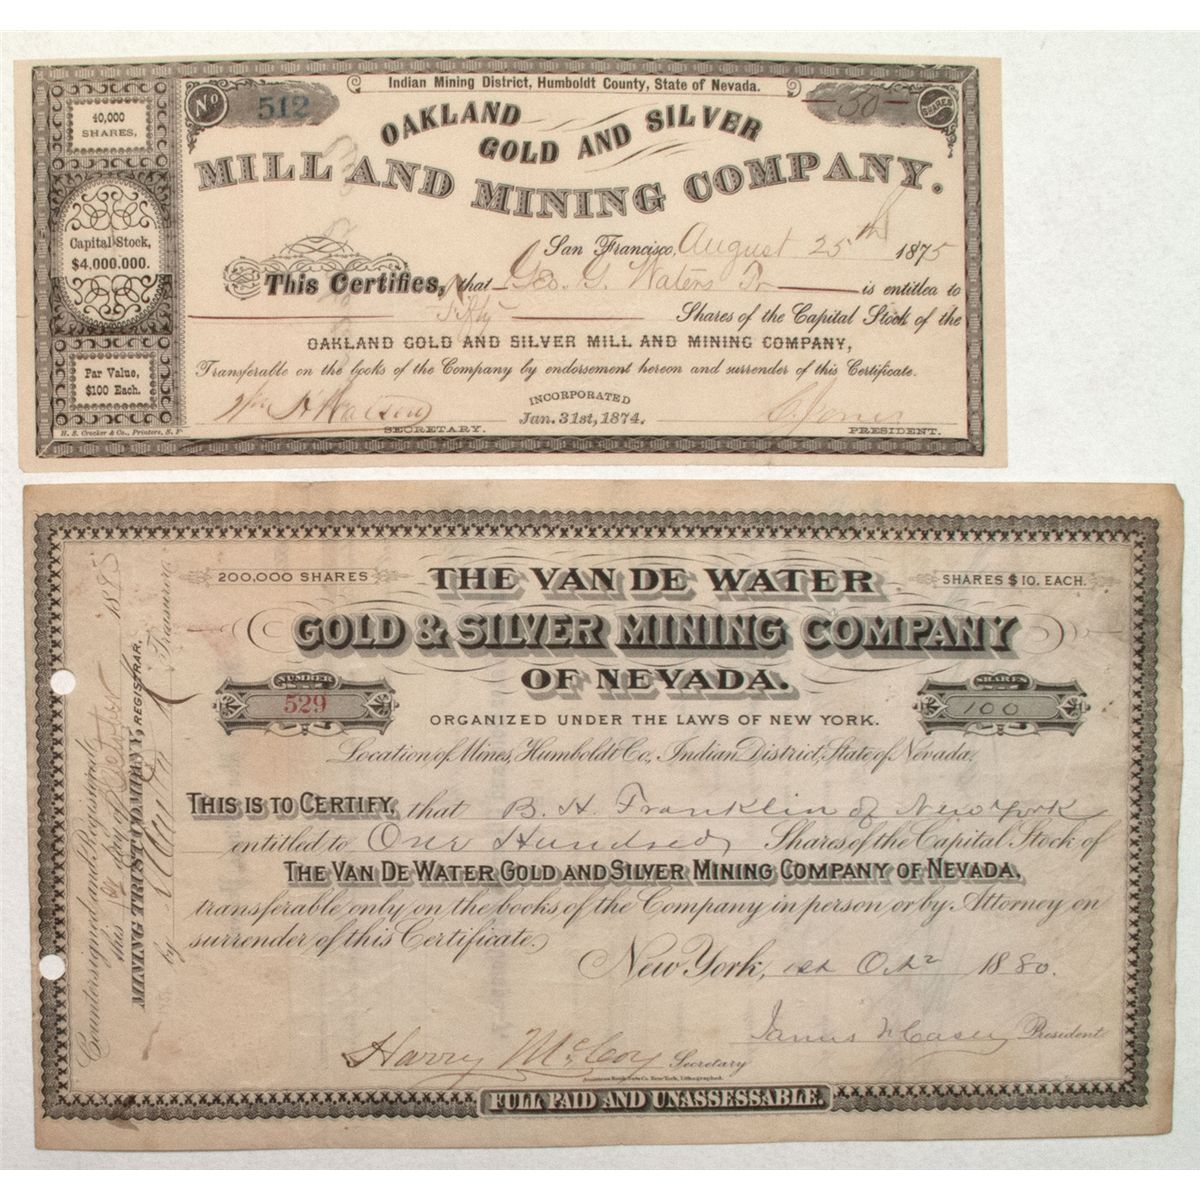 Indian Mining District, Humboldt County, State of Nevada.
No 512
50 SHARES
OAKLAND
GOLD AND SILVER
MILL AND MINING COMPANY.
40,000
SHARES,
Capital Stock,
$4,000.000.
Par Value,
$100 Each.
San Francisco, August 25th 1875
This Certifies, that Geo. G. Waters Tr is entitled to
Fifty Shares of the Capital Stock of the
OAKLAND GOLD AND SILVER MILL AND MINING COMPANY,
Transferable on the books of the Company by endorsement hereon and surrender of this Certificate.
INCORPORATED
Jan. 31st, 1874.
Wm H Watson
SECRETARY.
Jones
PRESIDENT.
H. S. Crocker & Co., Printers, S. F.
200,000 SHARES
THE VAN DE WATER
SHARES $10. EACH.
GOLD & SILVER MINING COMPANY
OF NEVADA.
NUMBER
529
SHARES
100
ORGANIZED UNDER THE LAWS OF NEW YORK.
Location of Mines, Humboldt Co, Indian District, State of Nevada.
THIS IS TO CERTIFY, that B. H. Franklin of New York
entitled to One Hundred Shares of the Capital Stock of
THE VAN DE WATER GOLD AND SILVER MINING COMPANY OF NEVADA,
transferable only on the books of the Company in person or by Attorney on
surrender of this Certificate.
New York, 1st Oct 1880.
James Casey President
Harry McCoy Secretary
American Bank Note Co. New York, Lithographed.
FULL PAID AND UNASSESSABLE.
Countersigned and Registered
this day of 188
MINING TRUST COMPANY, REGISTRAR.
by Treasurer.